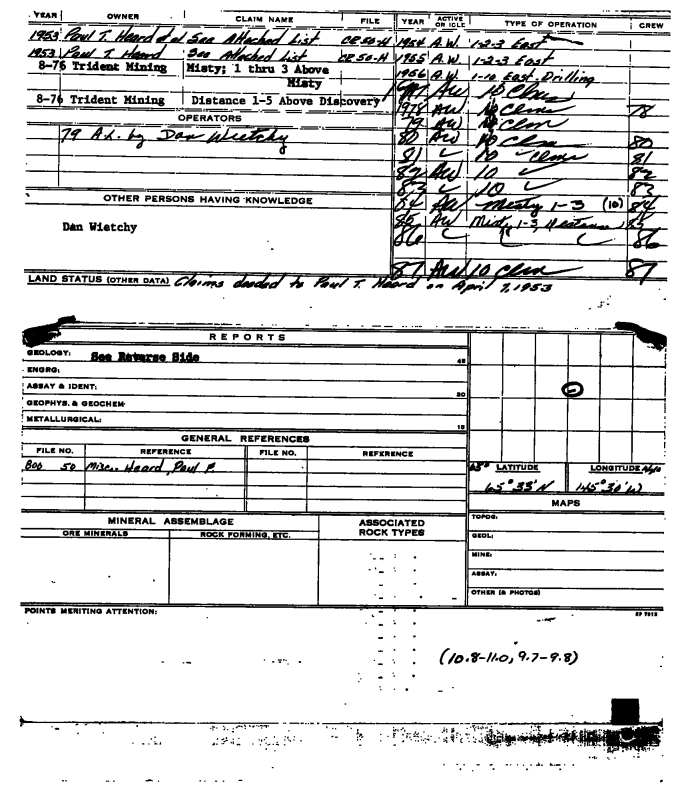 YEAR OWNER CLAIM NAME FILE YEAR ACTIVE OR IDLE TYPE OF OPERATION CREW
1953 Paul T. Heard et al See Attached List CR 50-H 1954 A.W. 1-2-3 East
1953 Paul T. Heard See Attached List CR 50-H 1955 A.W. 1-2-3 East
8-76 Trident Mining Misty; 1 thru 3 Above 1956 A.W. 1-10 East Drilling
Misty AW 10 Clms
8-76 Trident Mining Distance 1-5 Above Discovery 1978 AW 10 Clm 78
OPERATORS 79 AW 10 Clm
79 A.L. by Dan Wietchy 80 AW 10 Clm 80
81 10 Clms 81
82 AW 10 82
83 10 83
OTHER PERSONS HAVING KNOWLEDGE 84 AW Misty 1-3 (10) 84
Dan Wietchy 85 AW Misty 1-3, Distance 85
86 86
87 AW 10 Clm 87
LAND STATUS (OTHER DATA) Claims deeded to Paul T. Heard on April 7, 1953
REPORTS
GEOLOGY: See Reverse Side 45
ENGRG:
ASSAY & IDENT: 30
GEOPHYS. & GEOCHEM:
METALLURGICAL: 15
GENERAL REFERENCES
FILE NO. REFERENCE FILE NO. REFERENCE
50 Misc. Heard, Paul P.
65° LATITUDE LONGITUDE
65° 33' N 145° 30' W
MAPS
MINERAL ASSEMBLAGE
ORE MINERALS ROCK FORMING, ETC.
ASSOCIATED ROCK TYPES
TOPOG:
GEOL:
MINE:
ASSAY:
OTHER (& PHOTOS)
POINTS MERITING ATTENTION:
(10.8-11.0, 9.7-9.8)